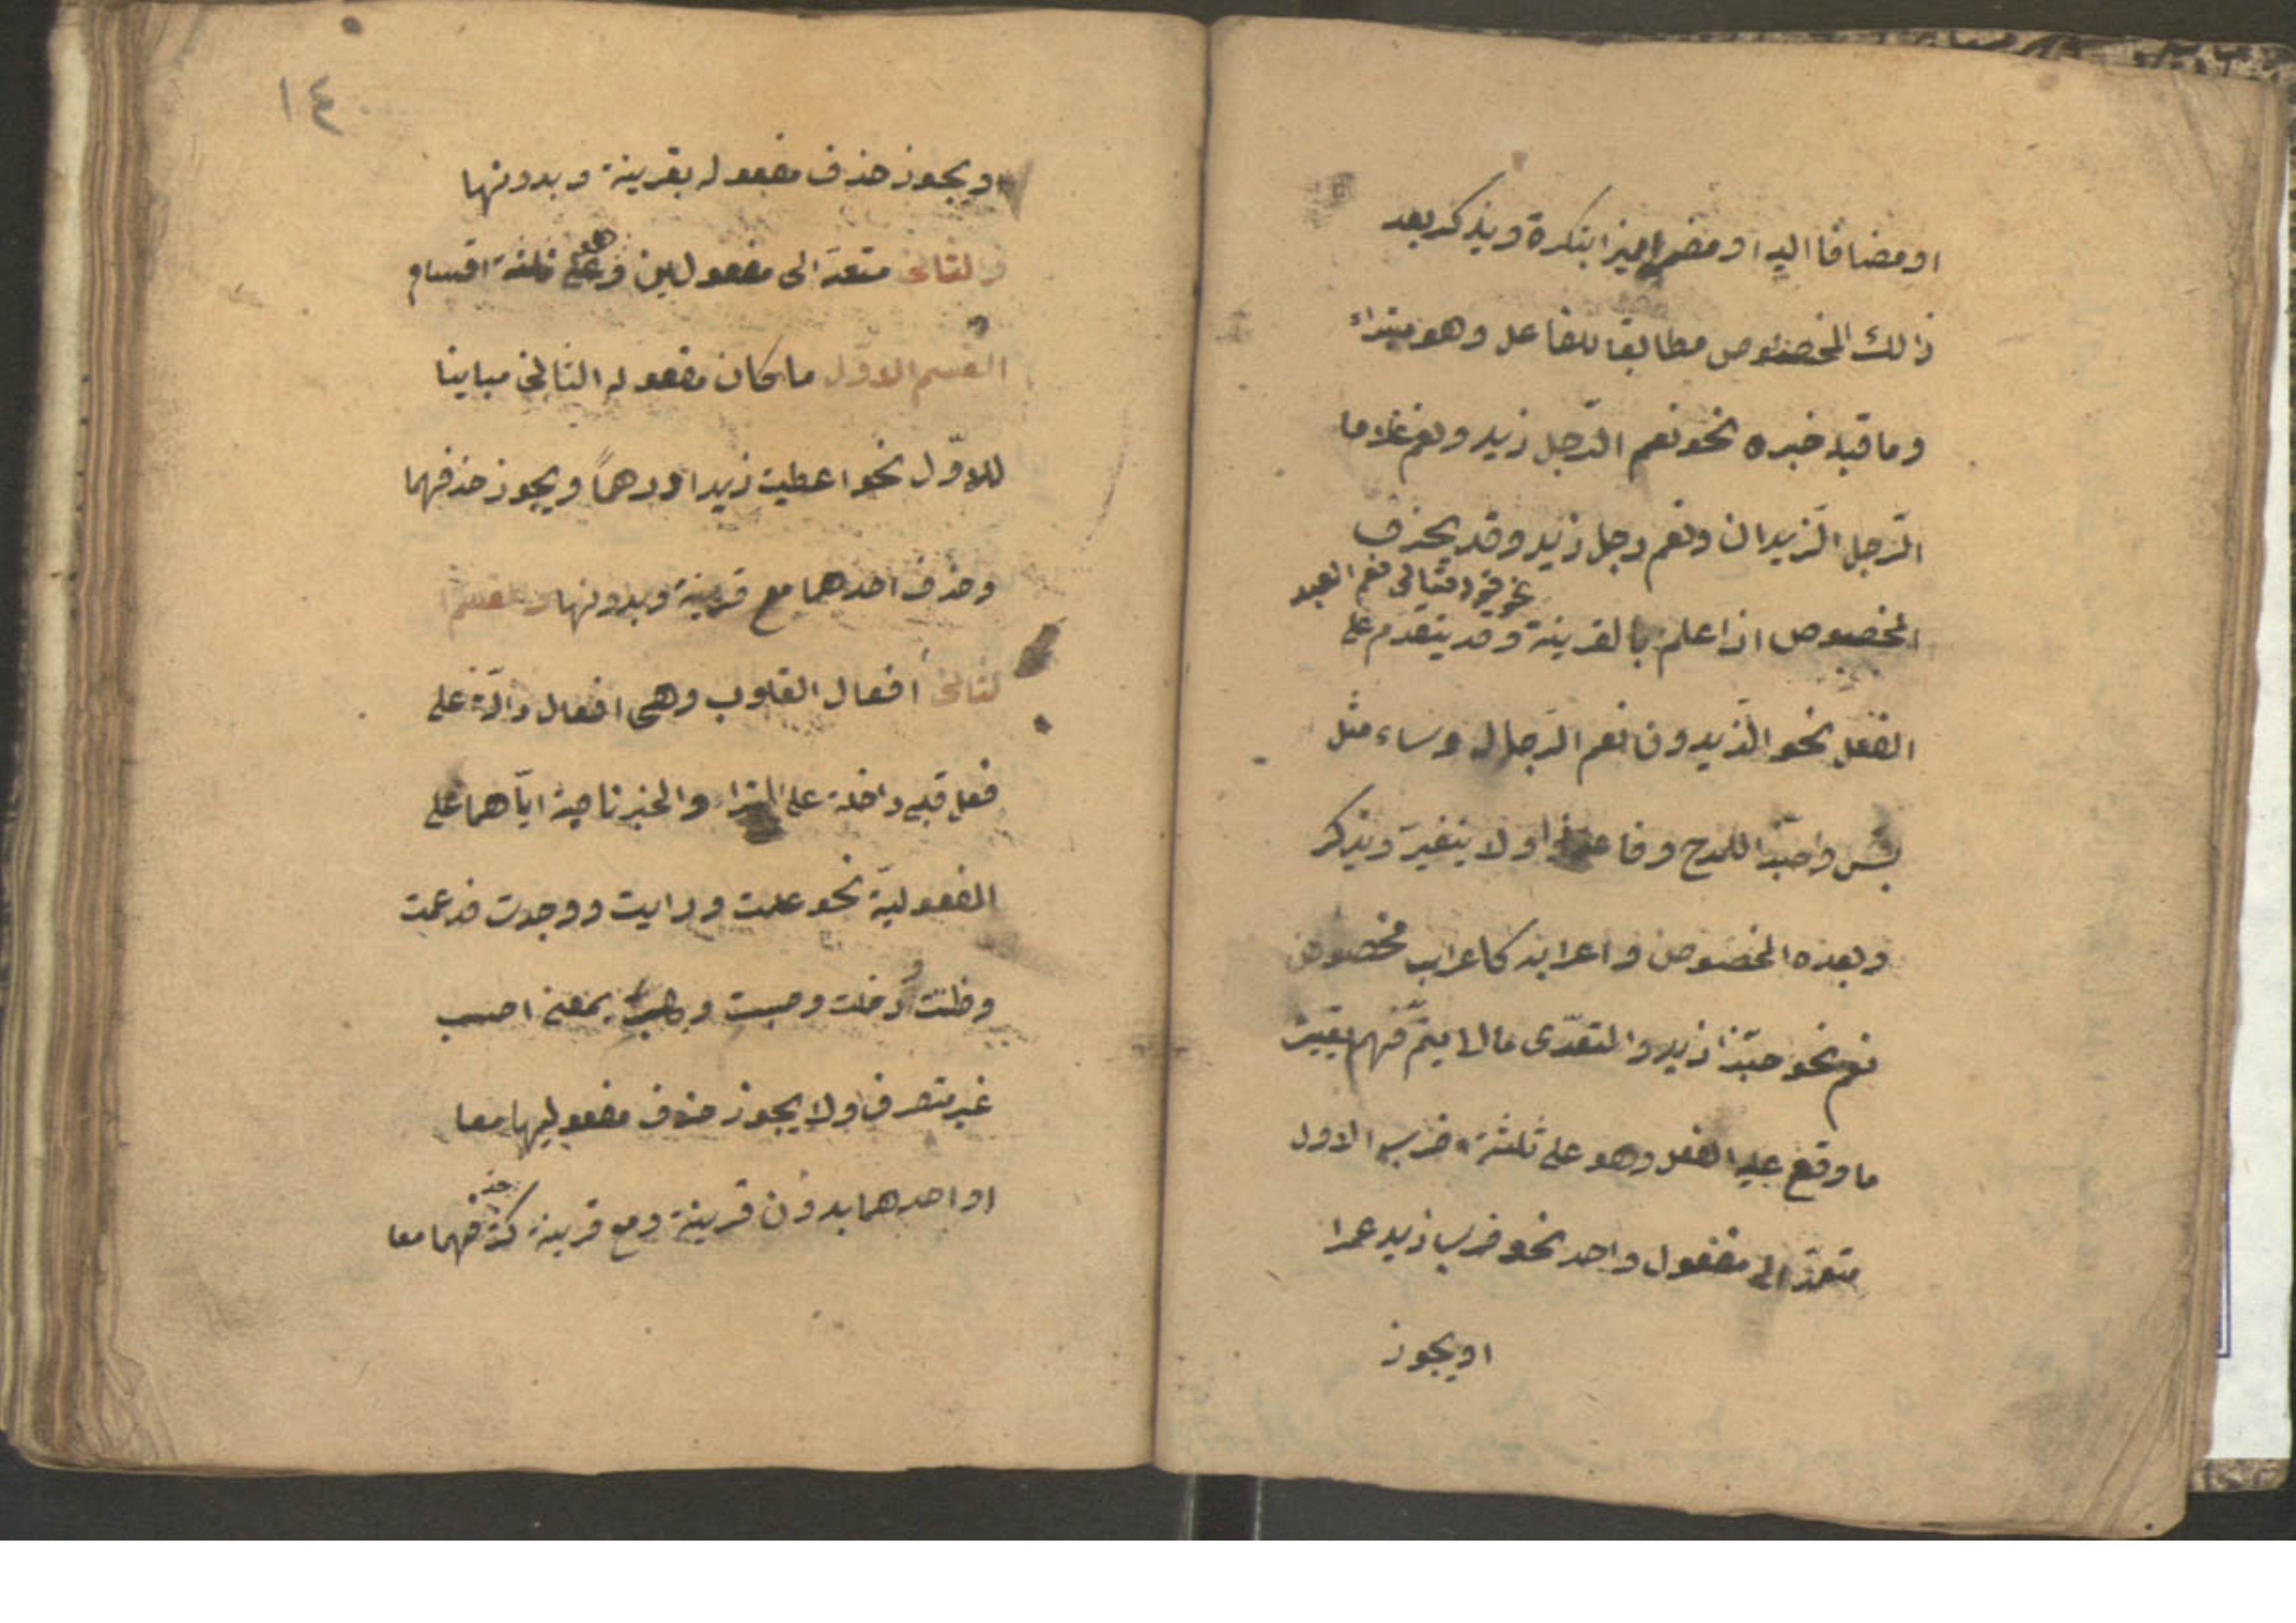 او مضافا اليه او مضمرا مميزا بنكرة ويذكر بعد
ذالك المخصوص مطابقا للفاعل وهو مبتداء
وما قبله خبره نحو نعم الرّجل زيد ونعم غلاما
الرّجل الزّيدان ونعم رجل زيد وقد يحذف
نحو قوله تعالى نعم العبد
المخصوص اذا علم بالقرينة وقد يتقدم على
الفعل نحو الزّيدون نعم الرّجال وساء مثل
بئس وحبّذا للمدح وفاعله ذا ولا يتغيّر ويذكر
وبعده المخصوص واعرابه كاعراب مخصوص
نعم نحو حبّذا زيد والمتعدّى ما لا يتمّ فهمه بغير
ما وقع عليه الفعل وهو على ثلثة اضرب الاول
متعدّ الى مفعول واحد نحو ضرب زيد عمرا
او يجوز
١٤
او يجوز حذف مفعوله بقرينة وبدونها
والثانى متعدّ الى مفعولين وهو على ثلثة اقسام
القسم الاوّل ما كان مفعوله الثانى مباينا
للاوّل نحو اعطيت زيدا درهماً ويجوز حذفهما
وحذف احدهما مع قرينة وبدونها والقسم
الثانى أفعال القلوب وهى افعال دالّة على
فعل قلبى داخلة على المبتداء والخبر ناصبة ايّاهما على
المفعوليّة نحو علمت ورايت ووجدت وزعمت
وظننت وخلت وحسبت وهب بمعنى احسب
غير متصرف ولا يجوز حذف مفعوليها معا
او احدهما بدون قرينة ومع قرينة كثر حذفهما معا